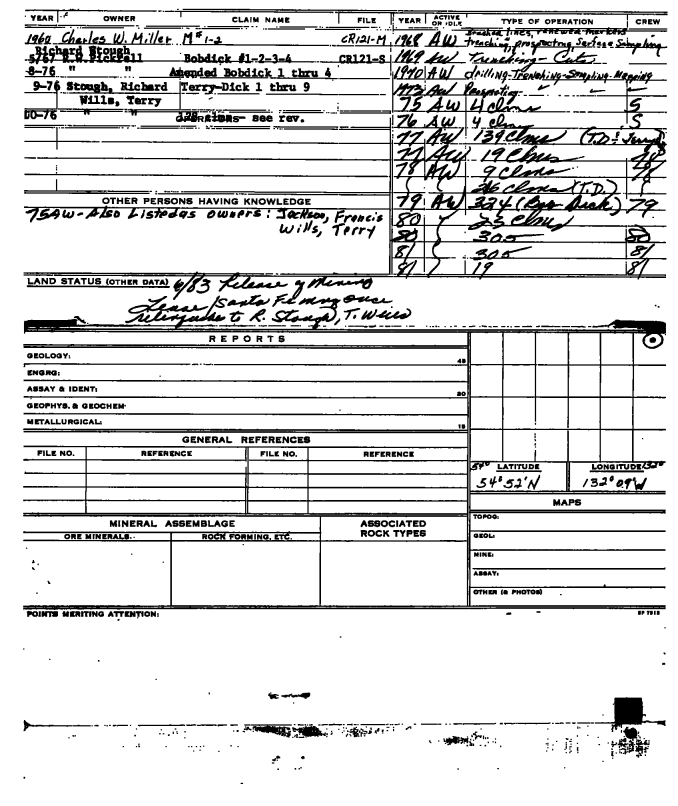 YEAR OWNER CLAIM NAME FILE YEAR ACTIVE OR IDLE TYPE OF OPERATION CREW
1960 Charles W. Miller M#1-2 CR121-M 1968 AW staked lines, renewed markers
trenching, prospecting Surface Sampling
Richard Stough
5/67 Bobdick #1-2-3-4 CR121-S 1969 AW Trenching - Cuts
8-76 " " Amended Bobdick 1 thru 4 1970 AW drilling-Trenching-Sampling-Mapping
9-76 Stough, Richard Terry-Dick 1 thru 9 1973 AW Prospecting
Wills, Terry 75 AW 4 clms 5
10-76 " " see rev. 76 AW 4 clms 5
77 AW 139 Clms
77 AW 19 Clms
78 AW 9 Clms 78
26 clms (T.D.)
OTHER PERSONS HAVING KNOWLEDGE 79 AW 324 79
75AW-Also Listed as owners: Jackson, Francis
Wills, Terry
80 23 Clms
80 305 80
81 305 81
81 19 81
LAND STATUS (OTHER DATA) 6/83 Release of Mining
Lease Santa Fe Mining
relinquishes to R. Stough, T. Wills
REPORTS
GEOLOGY: 45
ENGRG:
ASSAY & IDENT: 30
GEOPHYS. & GEOCHEM
METALLURGICAL: 15
GENERAL REFERENCES
FILE NO. REFERENCE FILE NO. REFERENCE
54° LATITUDE LONGITUDE 132°
54°52'N 132°09'W
MAPS
MINERAL ASSEMBLAGE ASSOCIATED ROCK TYPES
ORE MINERALS. ROCK FORMING, ETC.
TOPOG:
GEOL:
MINE:
ASSAY:
OTHER (& PHOTOS)
POINTS MERITING ATTENTION: SP 7913